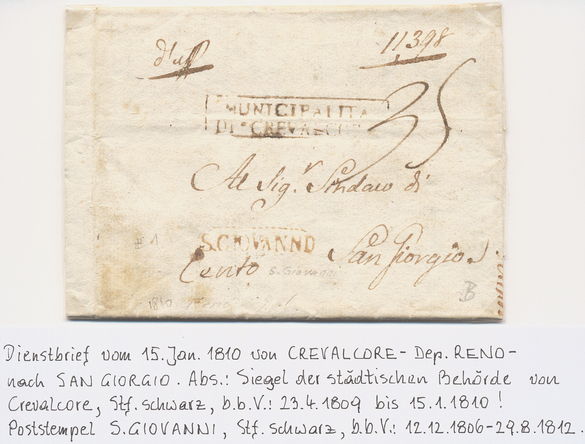 d'uff°
11398
MUNICIPALITA
DI CREVALCORE
35
Al Sig.r Sindaco di
S.GIOVANNO
# 1
Cento San Giorgio
S. Giovanni
1810
B
Dienstbrief vom 15. Jan. 1810 von CREVALCORE - Dep. RENO -
nach SAN GIORGIO. Abs.: Siegel der städtischen Behörde von
Crevalcore, Stf. schwarz, b.b.V.: 23.4.1809 bis 15.1.1810 !
Poststempel S. GIOVANNI, Stf. schwarz, b.b.V.: 12.12.1806-29.8.1812.